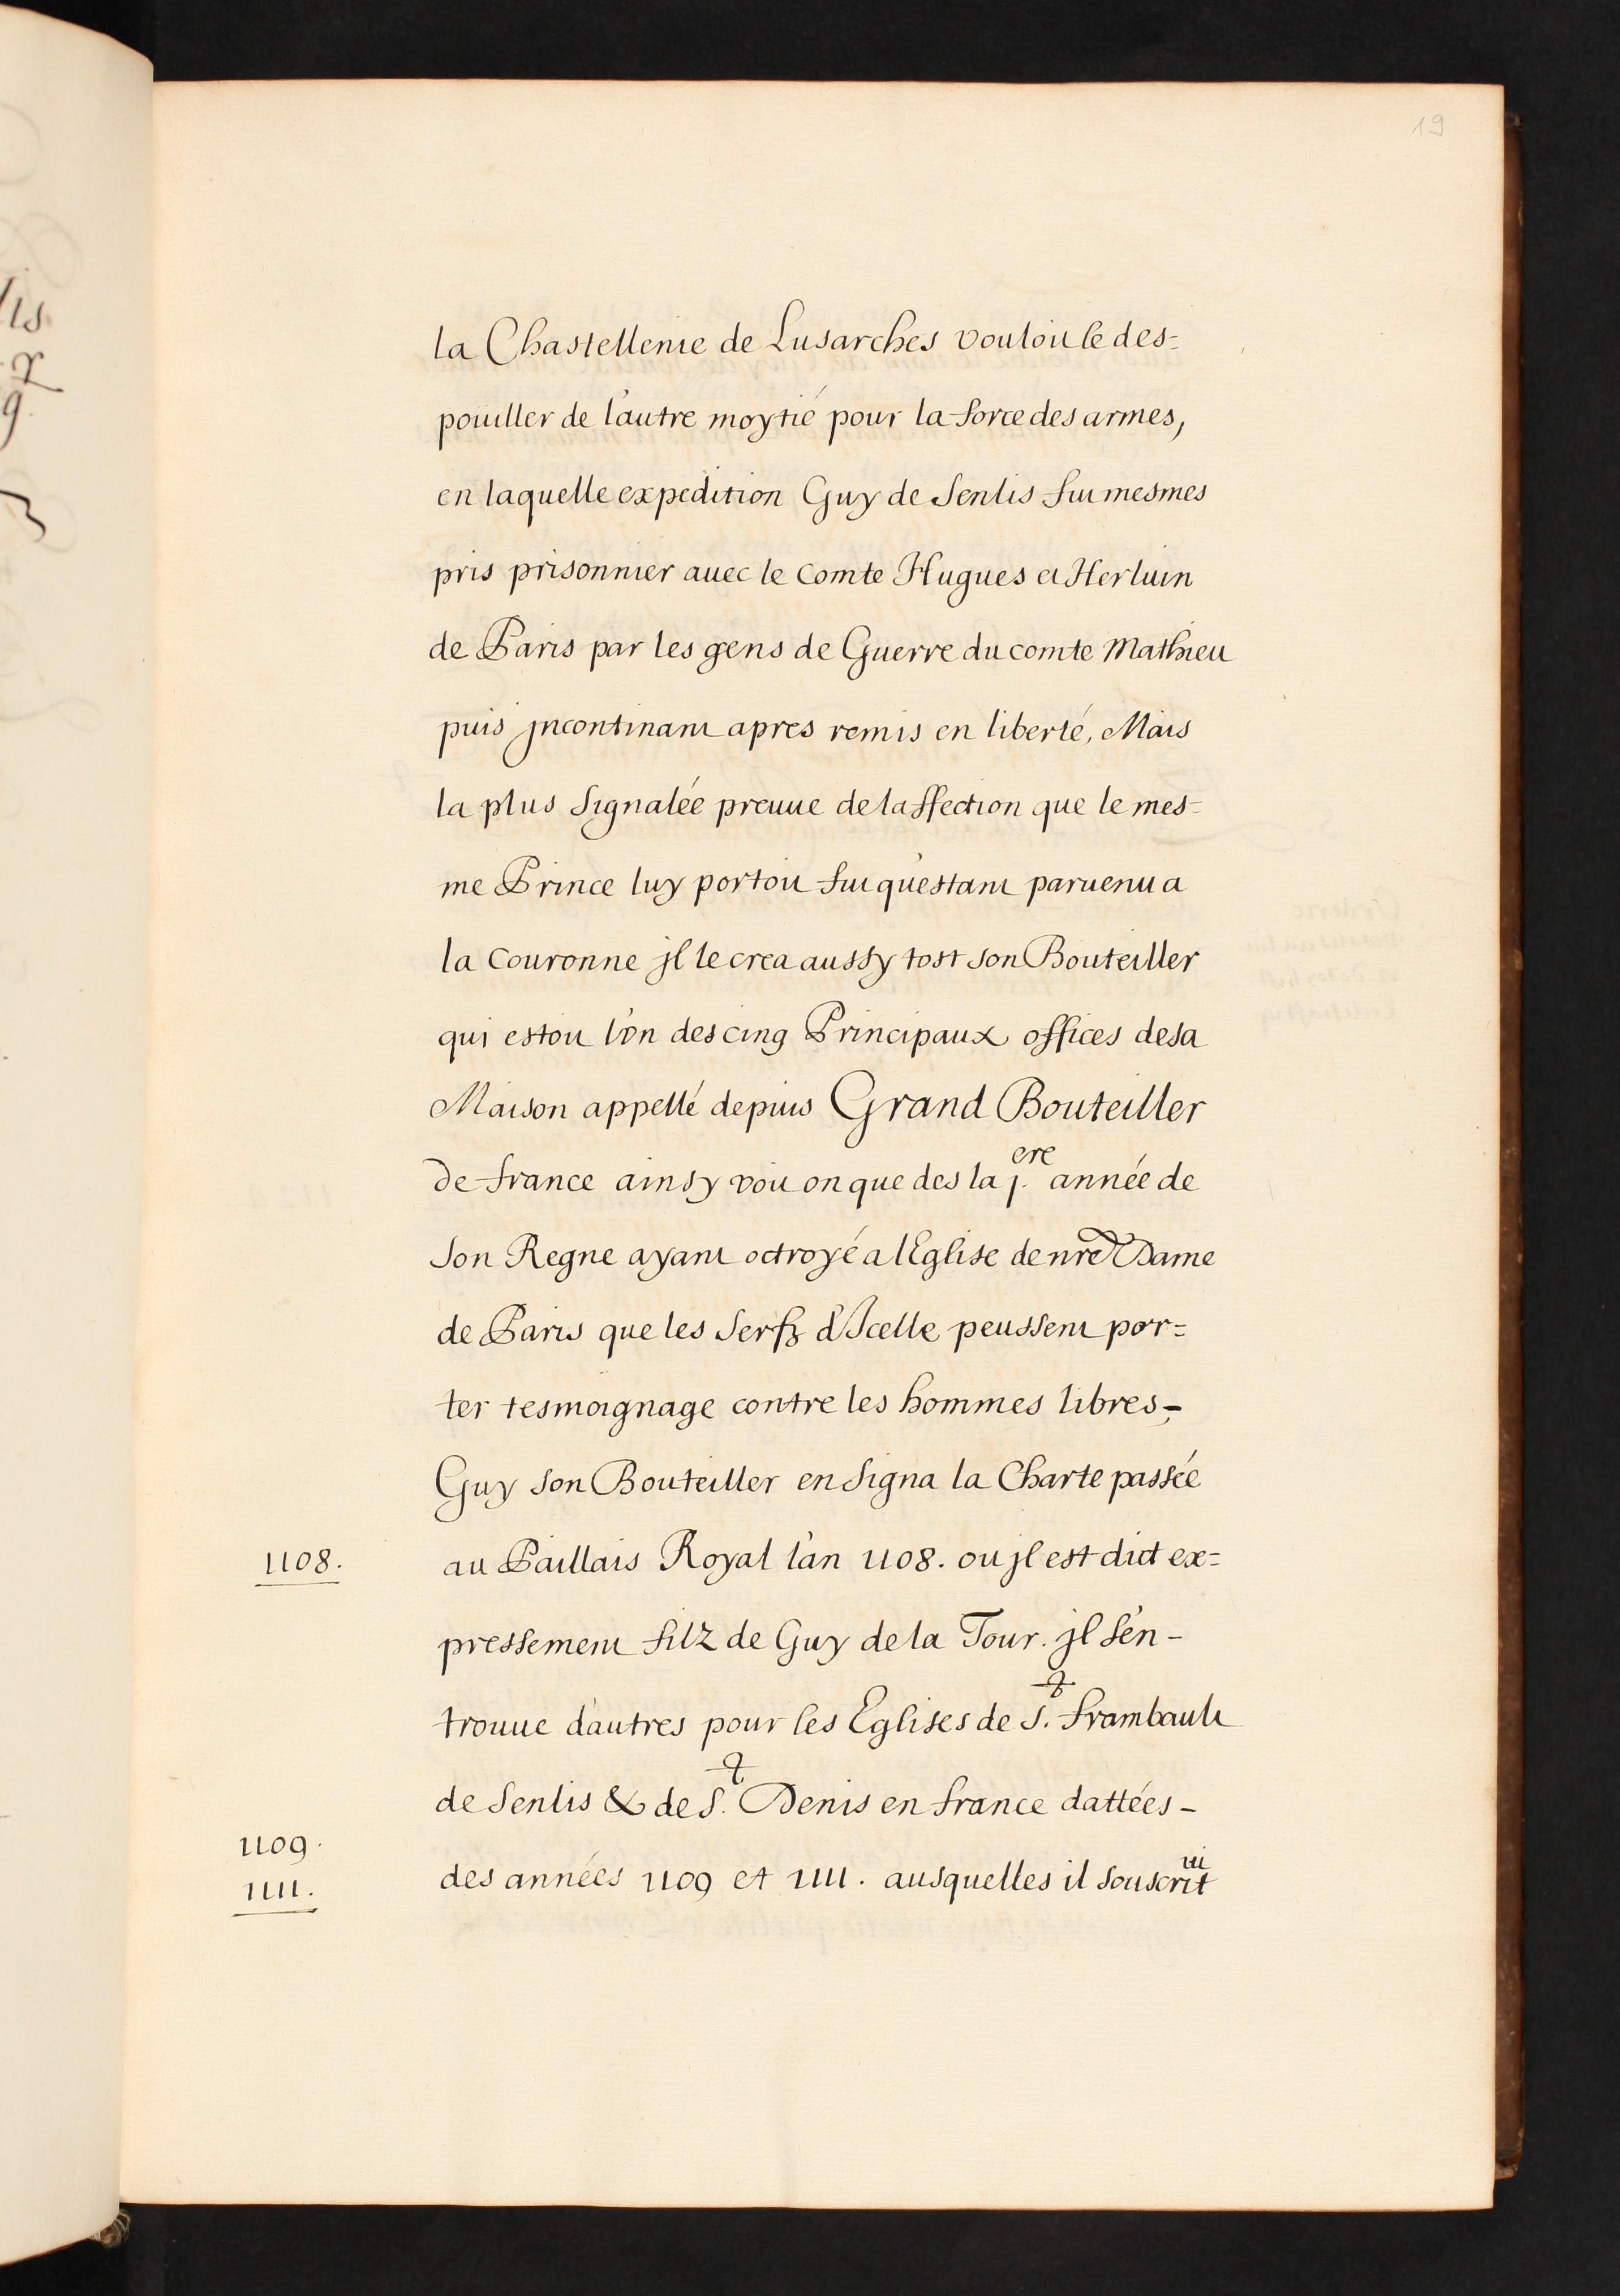 19
la Chastellenie de Lusarches vouloit le des=
pouiller de l'autre moytié pour la force des armes,
en laquelle expedition Guy de Senlis fut mesmes
pris prisonnier auec le Comte Hugues et Herluin
de Paris par les gens de Guerre du comte Mathieu
puis jncontinant apres remis en liberté, Mais
la plus signalée preuue de laffection que le mes=
me Prince luy portoit fut qu'estant paruenu a
la Couronne jl le crea aussy tost son Bouteiller
qui estoit l'vn des cinq Principaux offices de sa
Maison appellé depuis Grand Bouteiller
de france ainsy voit on que des la j.ere année de
son Regne ayant octroyé a l'Eglise de nre Dame
de Paris que les serfz d'Icelle peussent por=
ter tesmoignage contre les hommes libres,-
Guy son Bouteiller en signa la Charte passée
1108.
au Paillais Royal l'an 1108. ou jl est dict ex=
pressement filz de Guy de la Tour. jl s'en-
trouue d'autres pour les Eglises de S.t frambault
de Senlis & de S.t Denis en france dattées-
1109.
1111.
des années 1109 et 1111. ausquelles il souscrit